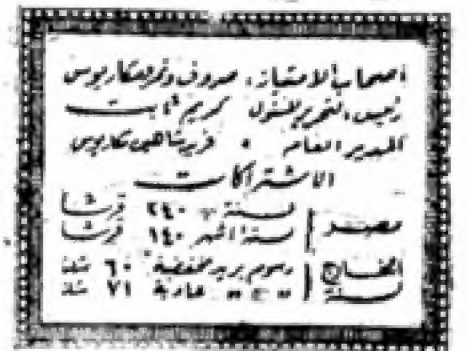 اصحاب الامتياز: صروف ونمر ومكاريوس
رئيس التحرير المسئول كريم ثابت
المدير العام • فريد شاهين مكاريوس
الاشتراكات
مصر لسنة ٢٤٠ قرشا
لستة اشهر ١٤٠ قرشا
الخارج رسوم بريد مخفضة ٦٠ شلنا
لسنة " " عادية ٧١ شلنا